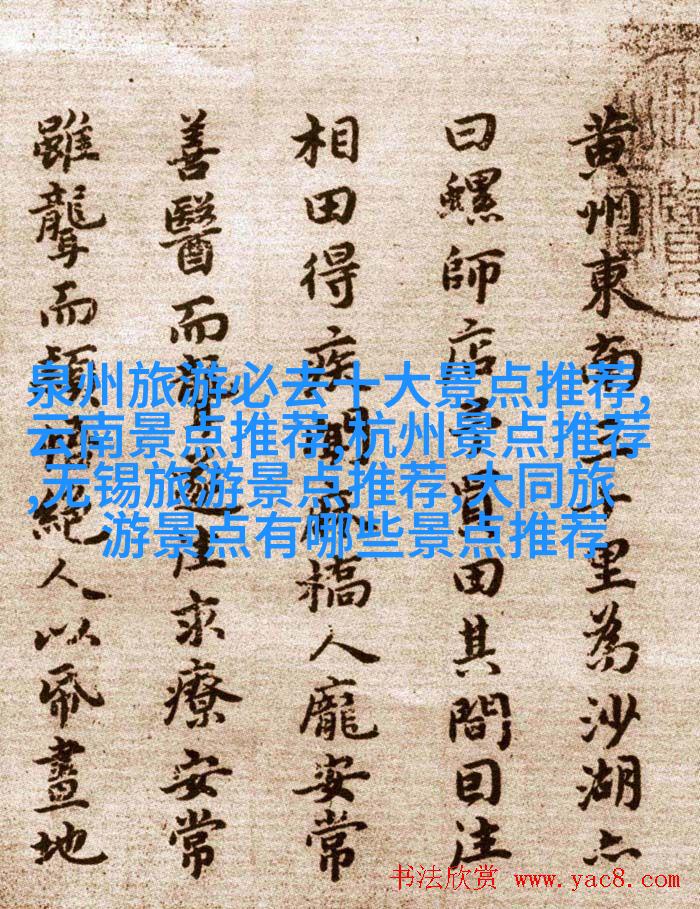 黄州東南三十里為沙湖亦
曰螺師店予買田其間因往
相田得疾聞麻橋人龐安常
善醫而聾遂往求療安常
雖聾而穎悟絕人以紙畫地
泉州旅游必去十大景点推荐,
云南景点推荐,杭州景点推荐
,无锡旅游景点推荐,大同旅
游景点有哪些景点推荐
书法欣赏 www.yac8.com